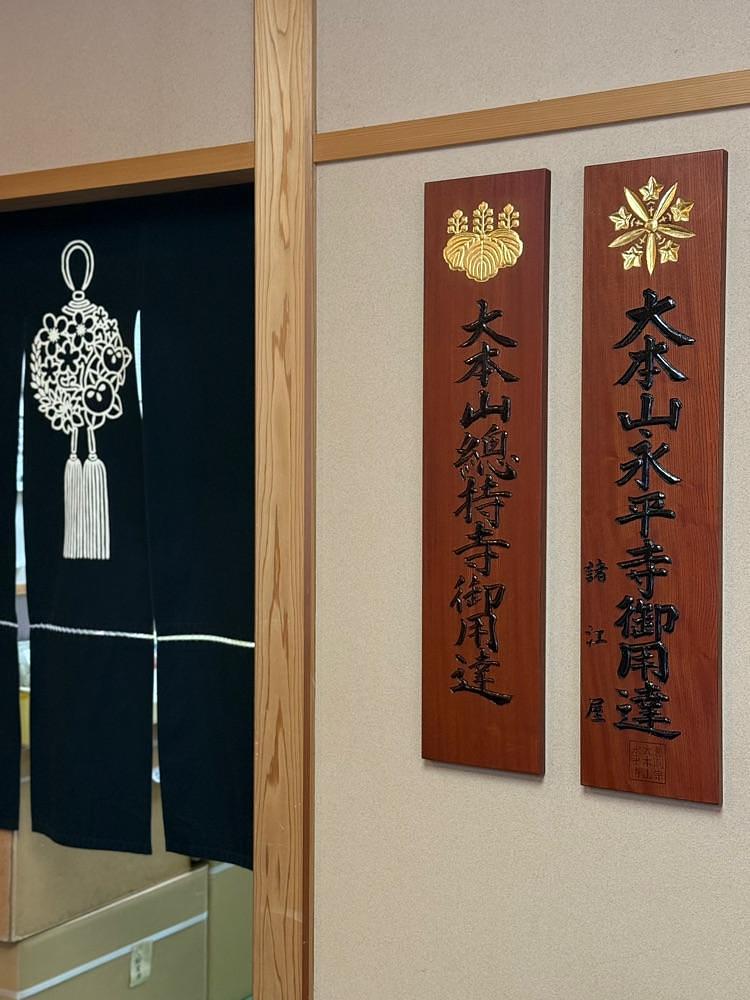 大本山永平寺御用達
諸江屋
大本山總持寺御用達